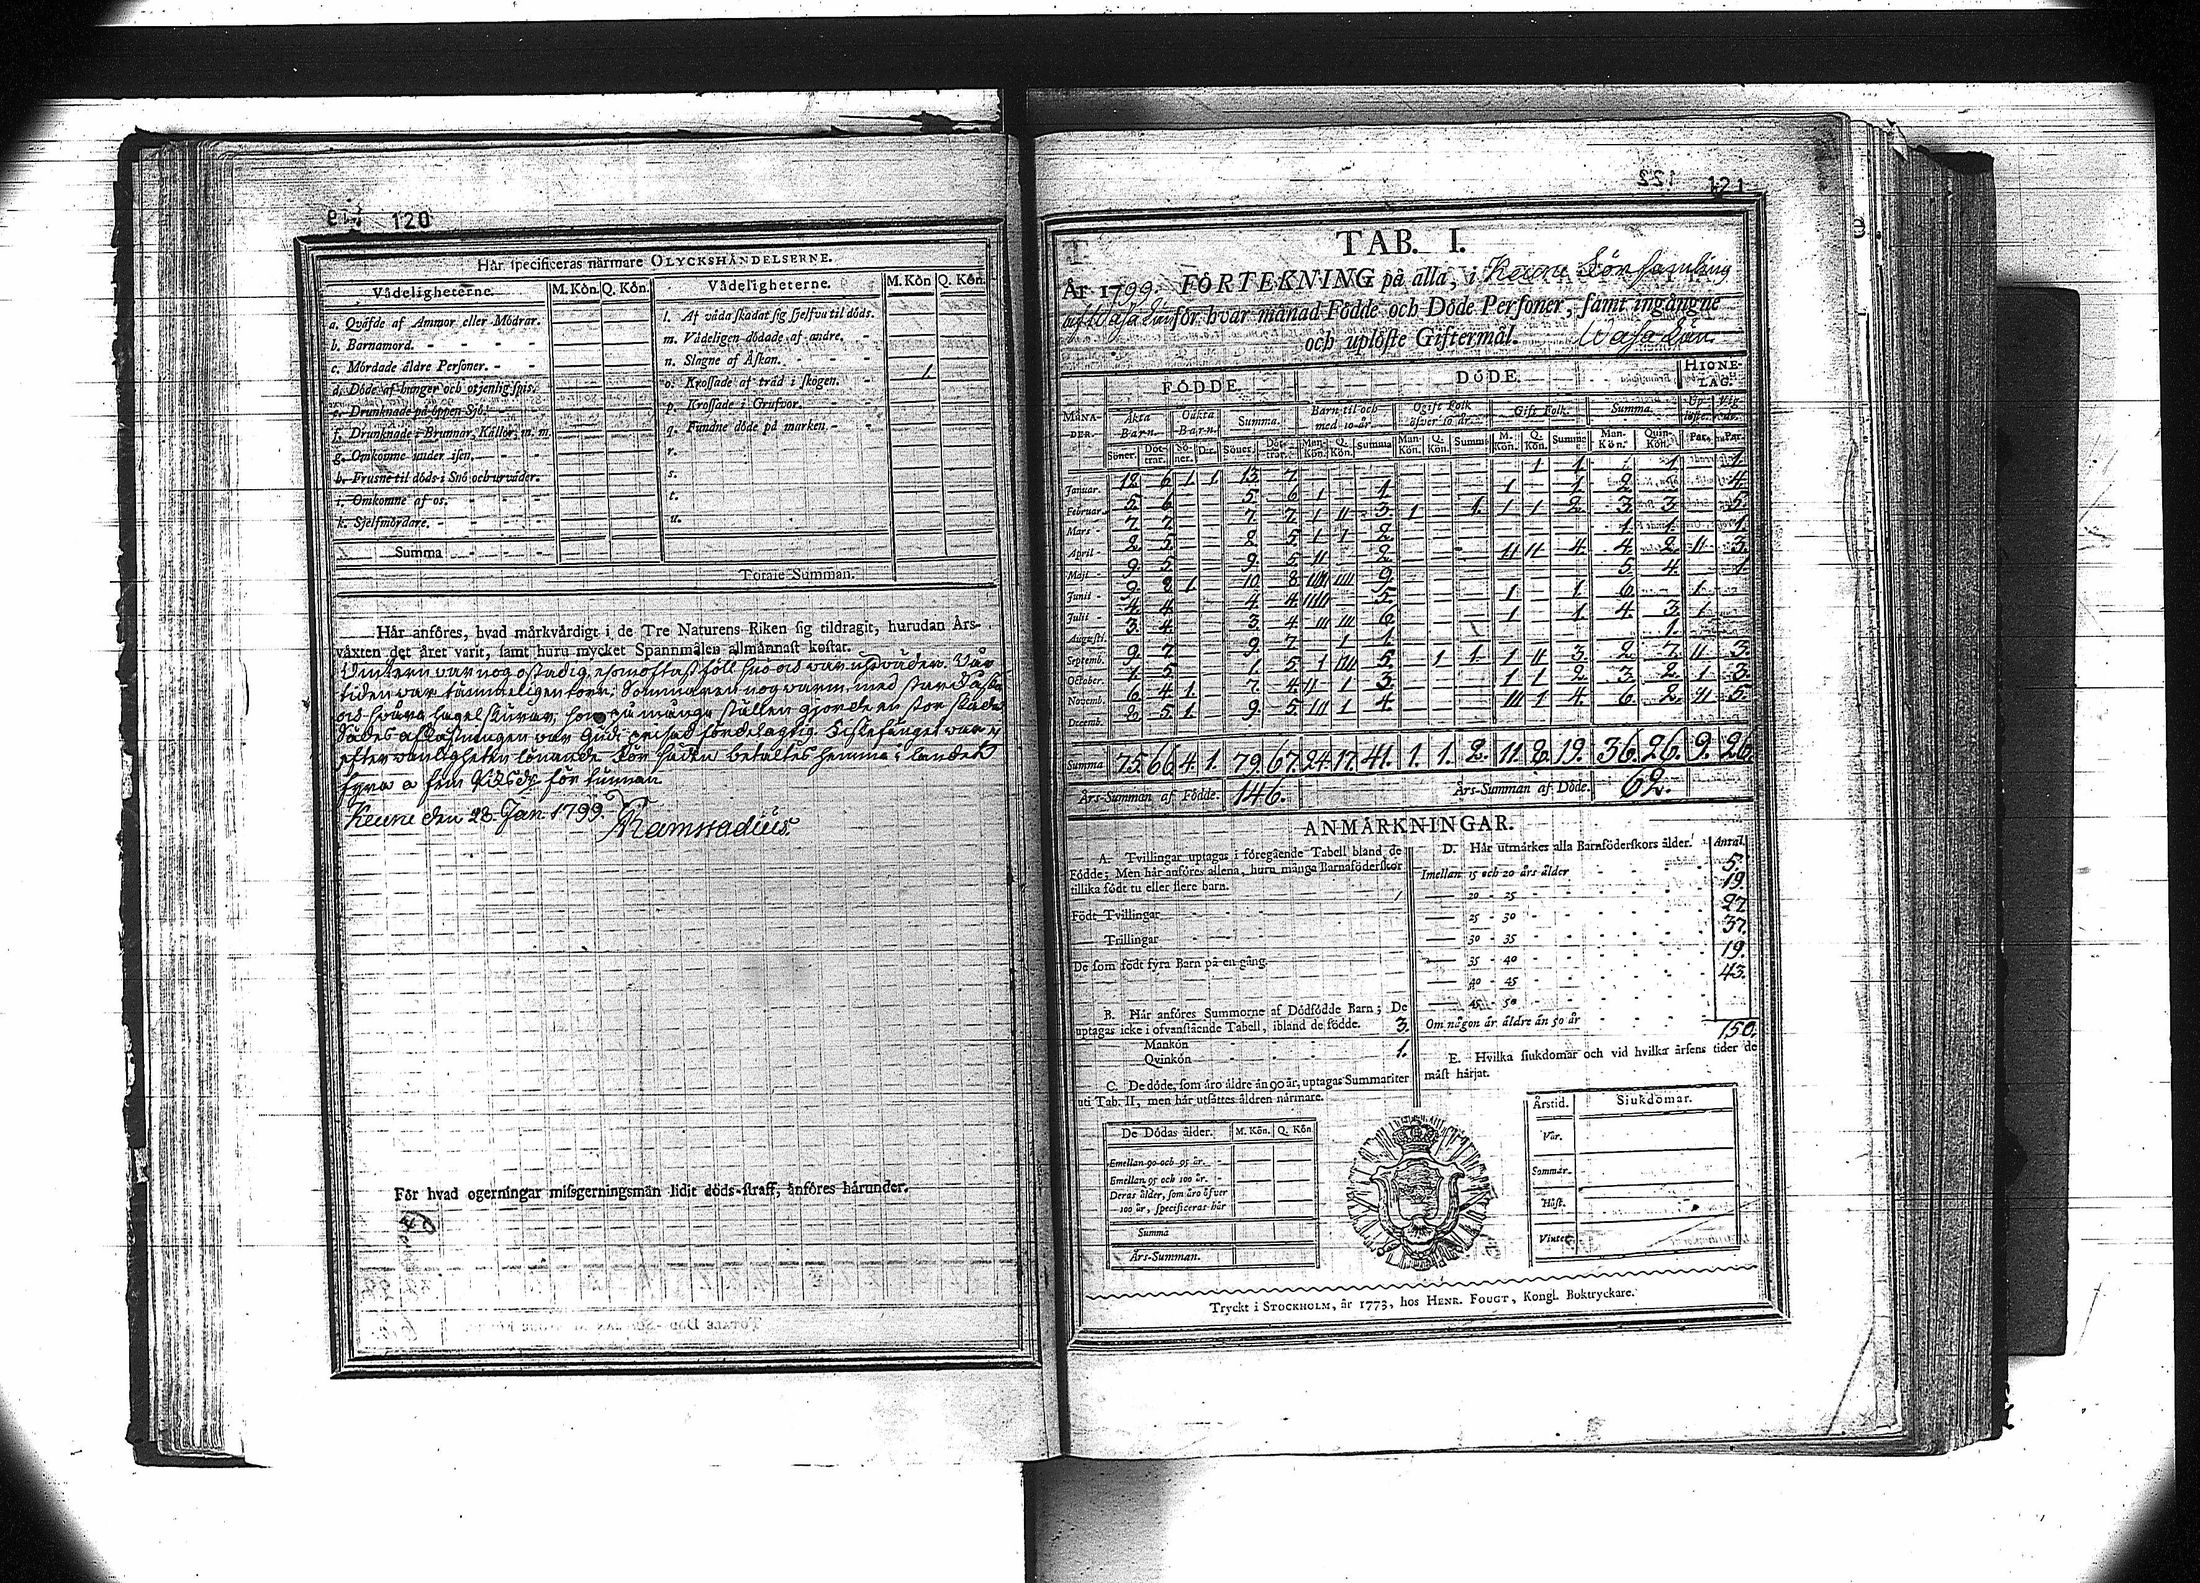 120
Här specificeras närmare OLYCKSHÄNDELSERNE.
Vådeligheterne. M. Kön. Q. Kön. Vådeligheterne. M. Kön Q. Kön.
a. Qväfde af Ammor eller Mödrar. l. Af våda skadat sig sjelfva til döds.
b. Barnamord. m. Vådeligen dödade af andre.
c. Mördade äldre Personer. n. Slagne af Åskan.
d. Döde af hunger och otjenlig spis. o. Krossade af träd i skogen. 1
e. Drunknade på öppen Sjö. p. Krossade i Grufvor.
f. Drunknade i Brunnar, Källor, m. m. q. Fundne döde på marken
g. Omkomne under isen. r.
h. Frusne til döds i Snö och urväder. s.
i. Omkomne af os. t.
k. Sjelfmördare. u.
Summa
Totale Summan.
Här anföres, hvad märkvärdigt i de Tre Naturens Riken sig tildragit, hurudan Års-
växten det året varit, samt huru mycket Spannmålen allmännast kostat.
Vintern var nog ostadig, som oftast föll snö och var urväder. Vår
tiden var tämmeligen torr. Sommaren nog varm, med
och svåra hagelskurar, som på många ställen gjorde en stor skada
Sädes afkastningen var Gudi prisad fördelagtig. Fiskefänget var
efter vanligheten lönande. För Säden betaltes hemma i landet
fyra a fem RDr för tunnan
Keure den 28. Jan. 1799.
Ramstadius.
För hvad ogerningar missgerningsmän lidit döds-straff, anföres härunder.
121
TAB. I.
År 1799. FÖRTEKNING på alla, i Keure Församling
af Wasa Län för hvar månad Födde och Döde Personer, samt ingångne
och uplöste Giftermål. Wasa Län.
FÖDDE DÖDE. HIONE-LAG.
MÅNA-DER. Äkta Barn. Oäkta Barn. Summa. Barn til och med 10 år. Ogift Folk öfver 10 år. Gift Folk. Summa. Up-löste. Vig-de.
Söner. Döt-trar. Sö-ner. D:r. Söner. Döt-trar. Man-Kön. Q. Kön. Summa Man-Kön. Q. Kön. Summa M. Kön. Q. Kön. Summa Man-Kön. Quin-Kön. Par. Par.
Januar. 12 6 1 1 13 7 1 1 1 1
Februar. 5 6 5 6 1 1 1 1 2 4
Mars 7 7 7 7 1 11 3 1 1 1 1 2 3 3 5
April 2 5 2 5 1 1 2 1 1 1
Maji 9 5 9 5 11 2 11 11 4 4 2 11 3
Junii 9 8 1 10 8 9 5 4 1
Julii 4 4 4 4 5 1 1 6 1
Augusti. 3 4 3 4 111 111 6 1 1 4 3 1
Septemb. 9 7 9 7 1 1 1
October. 1 5 1 5 1 1111 5 1 1 1 11 3 2 7 11 3
Novemb. 6 4 1 7 4 11 1 3 1 1 2 3 2 1 3
Decemb. 8 5 1 9 5 111 1 4 111 1 4 6 2 11 5
Summa 75. 66. 4. 1. 79. 67. 24. 17. 41. 1. 1. 2. 11. 8. 19. 36. 26. 9. 26.
Års-Summan af Födde. 146. Års-Summan af Döde. 62.
ANMÄRKNINGAR.
A. Tvillingar uptagas i föregående Tabell bland de
Födde; Men här anföres allena, huru många Barnaföderskor
tillika födt tu eller flere barn.
Födt Tvillingar 1
Trillingar
De som födt fyra Barn på en gång.
B. Här anföres Summorne af Dödfödde Barn; De
uptagas icke i ofvanstående Tabell, ibland de födde.
Mankön 3.
Qvinkön 1.
C. De döde, som äro äldre än 90 år, uptagas Summariter
uti Tab. II, men här utsättes åldren närmare.
De Dödas ålder. M. Kön. Q. Kön
Emellan 90 och 95 år.
Emellan 95 och 100 år.
Deras ålder, som äro öfver
100 år, specificeras här
Summa
Års-Summan.
D. Här utmärkes alla Barnföderskors ålder. Antal.
Imellan 15 och 20 års ålder 5.
20 - 25 19.
25 - 30 27
30 - 35 37.
35 - 40 19.
40 - 45 43.
45 - 50
Om någon är äldre än 50 år
150.
E. Hvilka siukdomar och vid hvilka årsens tider de
mäst härjat.
Årstid. Siukdomar.
Vår.
Sommar.
Höst.
Vinter.
Tryckt i STOCKHOLM, år 1773, hos HENR. FOUGT, Kongl. Boktryckare.